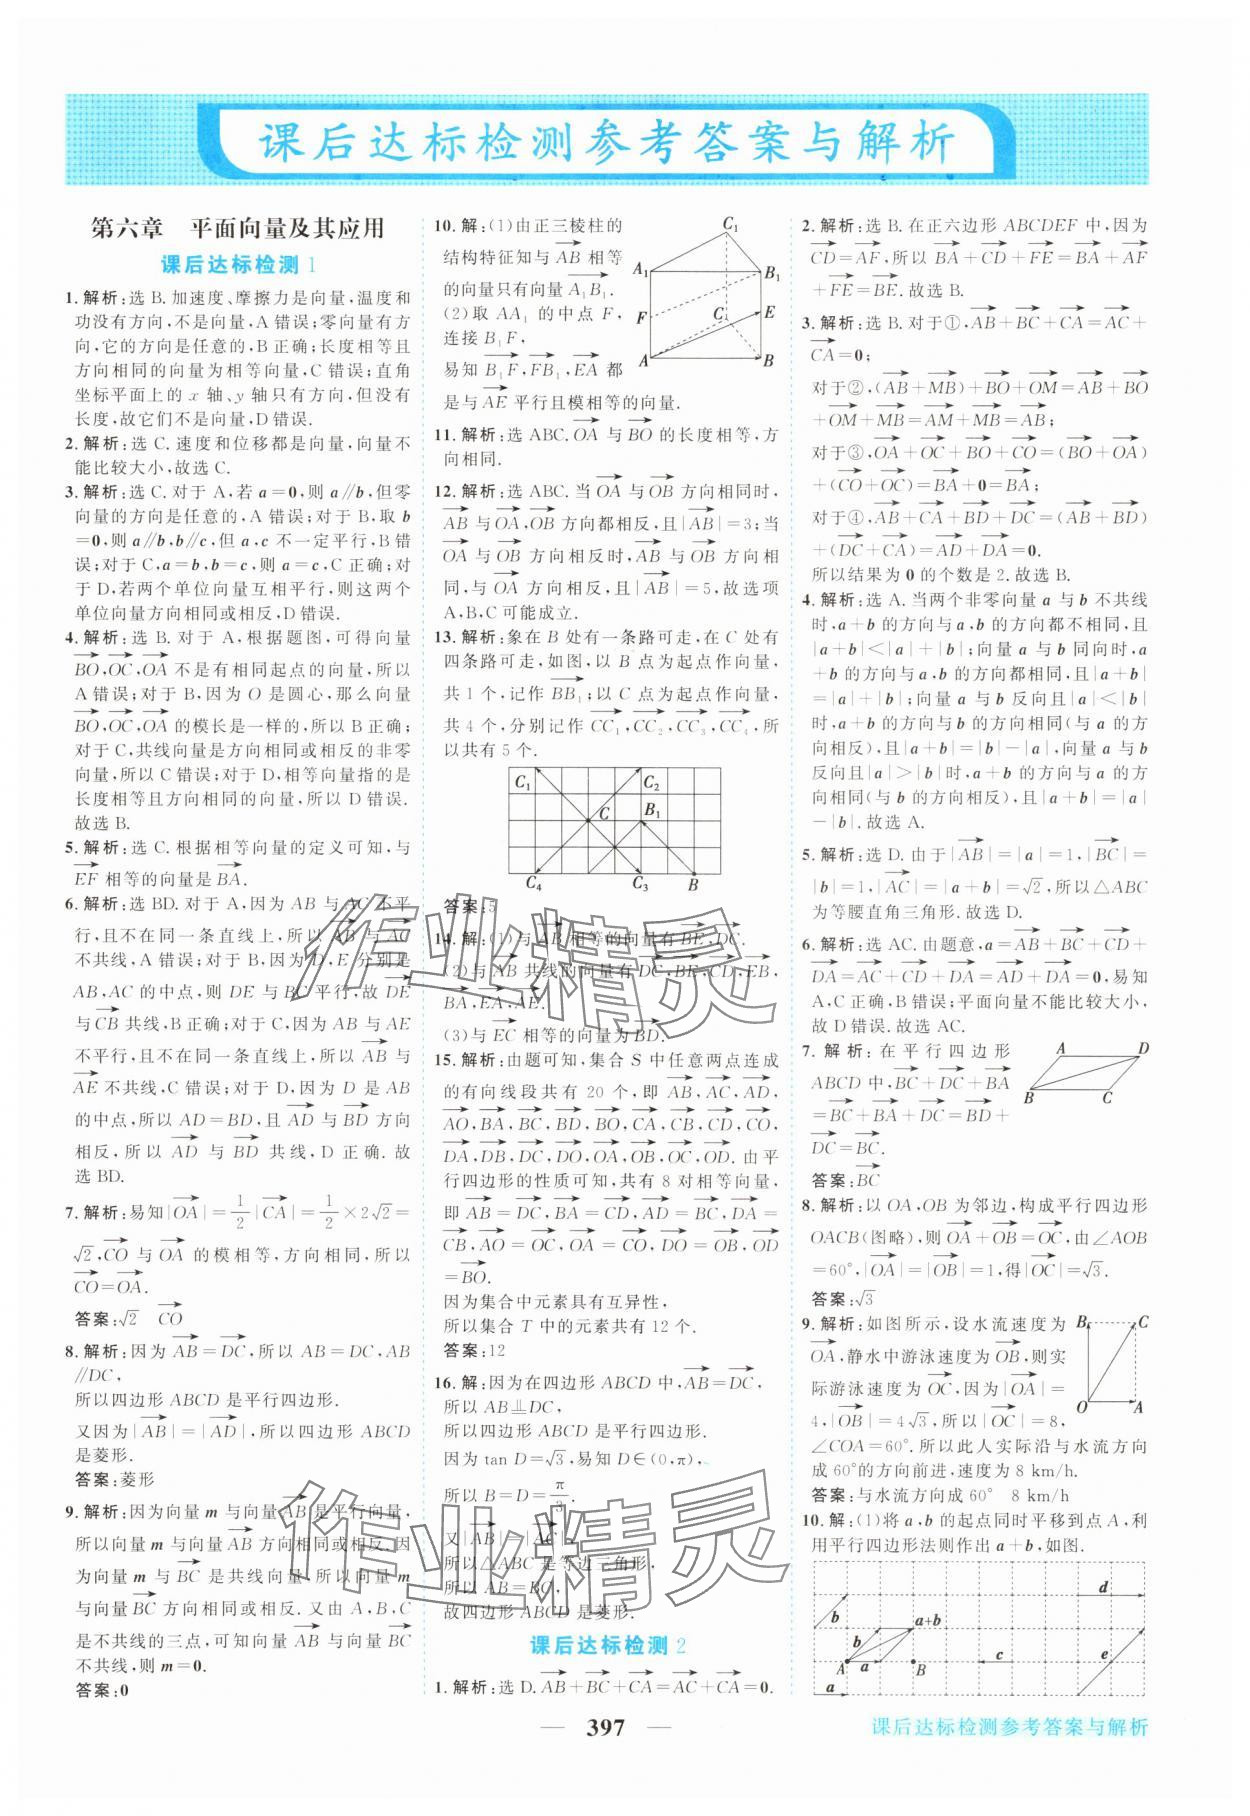 课后达标检测参考答案与解析
第六章 平面向量及其应用
课后达标检测 1
1.解析:选 B.加速度、摩擦力是向量,温度和
功没有方向,不是向量,A 错误;零向量有方
向,它的方向是任意的,B 正确;长度相等且
方向相同的向量为相等向量,C 错误;直角
坐标平面上的 x 轴、y 轴只有方向,但没有
长度,故它们不是向量,D 错误.
2.解析:选 C.速度和位移都是向量,向量不
能比较大小,故选 C.
3.解析:选 C.对于 A,若 a=0,则 a∥b,但零
向量的方向是任意的,A 错误;对于 B,取 b
=0,则 a∥b,b∥c,但 a,c 不一定平行,B 错
误;对于 C,a=b,b=c,则 a=c,C 正确;对
于 D,若两个单位向量互相平行,则这两个
单位向量方向相同或相反,D 错误.
4.解析:选 B.对于 A,根据题图,可得向量
BO,OC,OA 不是有相同起点的向量,所以
A 错误;对于 B,因为 O 是圆心,那么向量
BO,OC,OA 的模长是一样的,所以 B 正确;
对于 C,共线向量是方向相同或相反的非零
向量,所以 C 错误;对于 D,相等向量指的是
长度相等且方向相同的向量,所以 D 错误.
故选 B.
5.解析:选 C.根据相等向量的定义可知,与
EF 相等的向量是 BA.
6.解析:选 BD.对于 A,因为 AB 与 AC 不平
行,且不在同一条直线上,所以 AB 与 AC
不共线,A 错误;对于 B,因为 D,E 分别是
AB,AC 的中点,则 DE 与 BC 平行,故 DE
与 CB 共线,B 正确;对于 C,因为 AB 与 AE
不平行,且不在同一条直线上,所以 AB 与
AE 不共线,C 错误;对于 D,因为 D 是 AB
的中点,所以 AD=BD,且 AD 与 BD 方向
相反,所以 AD 与 BD 共线,D 正确.故
选 BD.
7.解析:易知|OA|=1/2|CA|=1/2×2√2=
√2,CO 与 OA 的模相等,方向相同,所以
CO=OA.
答案:√2 CO
8.解析:因为 AB=DC,所以 AB=DC,AB
∥DC,
所以四边形 ABCD 是平行四边形.
又因为|AB|=|AD|,所以四边形 ABCD
是菱形.
答案:菱形
9.解析:因为向量 m 与向量 AB 是平行向量,
所以向量 m 与向量 AB 方向相同或相反.因
为向量 m 与 BC 是共线向量,所以向量 m
与向量 BC 方向相同或相反.又由 A,B,C
是不共线的三点,可知向量 AB 与向量 BC
不共线,则 m=0.
答案:0
10.解:(1)由正三棱柱的
结构特征知与 AB 相等
的向量只有向量 A₁B₁.
(2)取 AA₁ 的中点 F,
连接 B₁F,
易知 B₁F,FB₁,EA 都
是与 AE 平行且模相等的向量.
C₁
A₁
B₁
F
C
E
A
B
11.解析:选 ABC.OA 与 BO 的长度相等,方
向相同.
12.解析:选 ABC.当 OA 与 OB 方向相同时,
AB 与 OA,OB 方向都相反,且|AB|=3;当
OA 与 OB 方向相反时,AB 与 OB 方向相
同,与 OA 方向相反,且|AB|=5,故选项
A,B,C 可能成立.
13.解析:象在 B 处有一条路可走,在 C 处有
四条路可走,如图,以 B 点为起点作向量,
共 1 个,记作 BB₁;以 C 点为起点作向量,
共 4 个,分别记作 CC₁,CC₂,CC₃,CC₄,所
以共有 5 个.
C₁ C₂
C B₁
C₄ C₃ B
答案:5
14.解:(1)与 AB 相等的向量有 BE,DC.
(2)与 AB 共线的向量有 DC,BE,CD,EB,
BA,EA,AE.
(3)与 EC 相等的向量为 BD.
15.解析:由题可知,集合 S 中任意两点连成
的有向线段共有 20 个,即 AB,AC,AD,
AO,BA,BC,BD,BO,CA,CB,CD,CO,
DA,DB,DC,DO,OA,OB,OC,OD.由平
行四边形的性质可知,共有 8 对相等向量,
即 AB=DC,BA=CD,AD=BC,DA=
CB,AO=OC,OA=CO,DO=OB,OD
=BO.
因为集合中元素具有互异性,
所以集合 T 中的元素共有 12 个.
答案:12
16.解:因为在四边形 ABCD 中,AB=DC,
所以 AB∥DC,
所以四边形 ABCD 是平行四边形.
因为 tan D=√3,D∈(0,π),
所以 B=D=π/3.
又|AB|=|AC|,
所以△ABC 是等边三角形,
所以 AB=BC,
故四边形 ABCD 是菱形.
课后达标检测 2
1.解析:选 D.AB+BC+CA=AC+CA=0.
2.解析:选 B.在正六边形 ABCDEF 中,因为
CD=AF,所以 BA+CD+FE=BA+AF
+FE=BE.故选 B.
3.解析:选 B.对于①,AB+BC+CA=AC+
CA=0;
对于②,(AB+MB)+BO+OM=AB+BO
+OM+MB=AM+MB=AB;
对于③,OA+OC+BO+CO=(BO+OA)
+(CO+OC)=BA+0=BA;
对于④,AB+CA+BD+DC=(AB+BD)
+(DC+CA)=AD+DA=0.
所以结果为 0 的个数是 2.故选 B.
4.解析:选 A.当两个非零向量 a 与 b 不共线
时,a+b 的方向与 a,b 的方向都不相同,且
|a+b|<|a|+|b|;向量 a 与 b 同向时,a
+b 的方向与 a,b 的方向都相同,且|a+b|
=|a|+|b|;向量 a 与 b 反向且|a|<|b|
时,a+b 的方向与 b 的方向相同(与 a 的方
向相反),且|a+b|=|b|-|a|,向量 a 与 b
反向且|a|>|b|时,a+b 的方向与 a 的方
向相同(与 b 的方向相反),且|a+b|=|a|
-|b|.故选 A.
5.解析:选 D.由于|AB|=|a|=1,|BC|=
|b|=1,|AC|=|a+b|=√2,所以△ABC
为等腰直角三角形.故选 D.
6.解析:选 AC.由题意,a=AB+BC+CD+
DA=AC+CD+DA=AD+DA=0.易知
A,C 正确,B 错误;平面向量不能比较大小,
故 D 错误.故选 AC.
7.解析:在平行四边形
ABCD 中,BC+DC+BA
=BC+BA+DC=BD+
DC=BC.
答案:BC
A D
B C
8.解析:以 OA,OB 为邻边,构成平行四边形
OACB(图略),则 OA+OB=OC,由∠AOB
=60°,|OA|=|OB|=1,得|OC|=√3.
答案:√3
9.解析:如图所示,设水流速度为
OA,静水中游泳速度为 OB,则实
际游泳速度为 OC,因为|OA|=
4,|OB|=4√3,所以|OC|=8,
∠COA=60°.所以此人实际沿与水流方向
成 60°的方向前进,速度为 8 km/h.
答案:与水流方向成 60° 8 km/h
B C
O A
10.解:(1)将 a,b 的起点同时平移到点 A,利
用平行四边形法则作出 a+b,如图.
d
b a+b
b e
A a B c
a
397
课后达标检测参考答案与解析
作业精灵
作业精灵